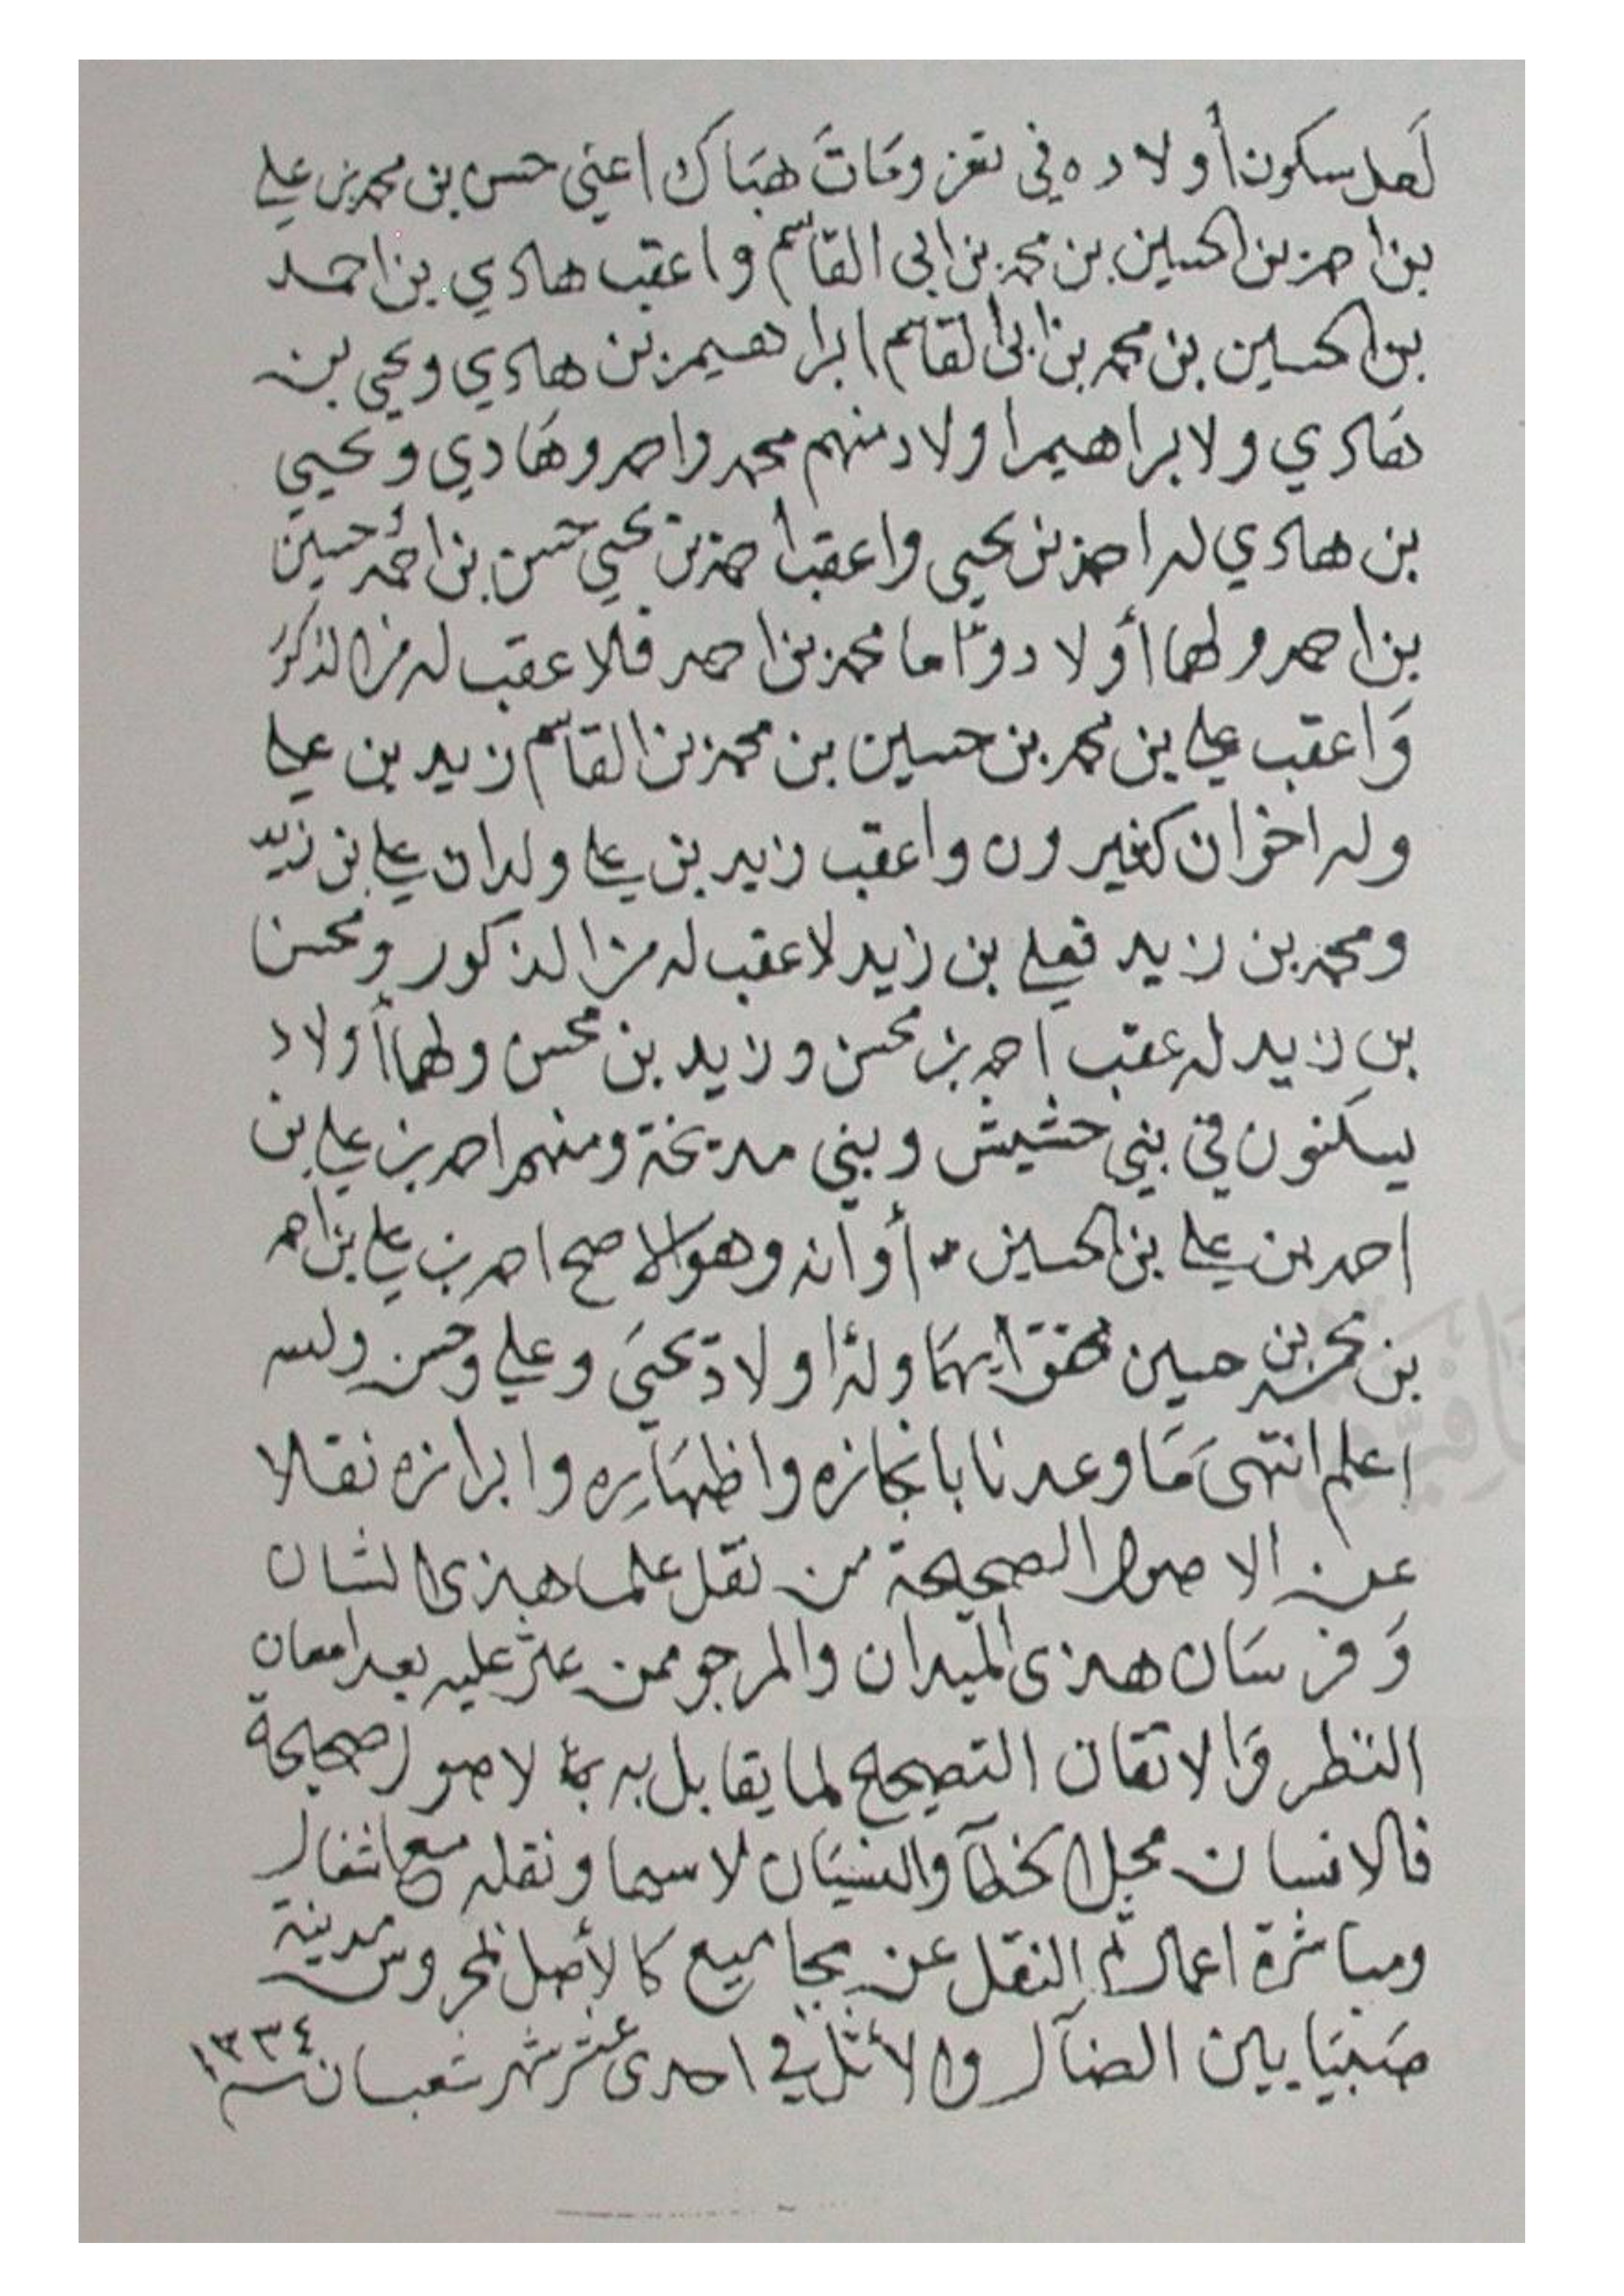 لَعل سكون أولاده في تعز ومَاتَ هنَاك اعني حسن بن محمد بن علي
بن احمد بن الحسين بن محمد بن ابي القاسم واعقب هادي بن احمد
بن الحسين بن محمد بن ابي القاسم ابراهيم بن هادي ويحي بن
هَادي ولابراهيم اولاد منهم محمد واحمد وهَادي ويحيى
بن هادي له احمد بن يحيى واعقب احمد بن يحيى حسن بن احمد وحسين
بن احمد ولهما أولاد وامّا محمد بن احمد فلا عقب له من الذكور
وَاعقب علي بن محمد بن حسين بن محمد بن القاسم زيد بن علي
وله اخوان كثيرون واعقب زيد بن علي ولدان علي بن زيد
ومحمد بن زيد فعلي بن زيد لا عقب له من الذكور ومحسن
بن زيد له عقب احمد بن محسن وزيد بن محسن ولهما أولاد
يسكنون في بني حشيش وبني مديخة ومنهم احمد بن علي بن
احمد بن علي بن الحسين أو انه وهو الاصح احمد بن علي بن احمد
بن محمد بن حسين وله اولاد يحيَى وعلي وحسن والله
اعلم انتهىَ مَا وعدنا بانجازه واظهَاره وابرازه نقلا
عن الاصول الصحيحة من نقل علما هذى الشان
وَفرسَان هذى الميدان والمرجو ممن عثر عليه بعد امعان
النظر وَالاتقان التصحيح لما يقابل به لاصول صحيحة
فالانسان محل الخطأ والنسيَان لا سيما ونقله مع اشغال
ومباشرة اعمال ثم النقل عن مجاميع كالأصل المحروس مدينة
صَبيَا بين الضآل والأثل في احدى عشر شهر شعبان سنة ١٣٣٤